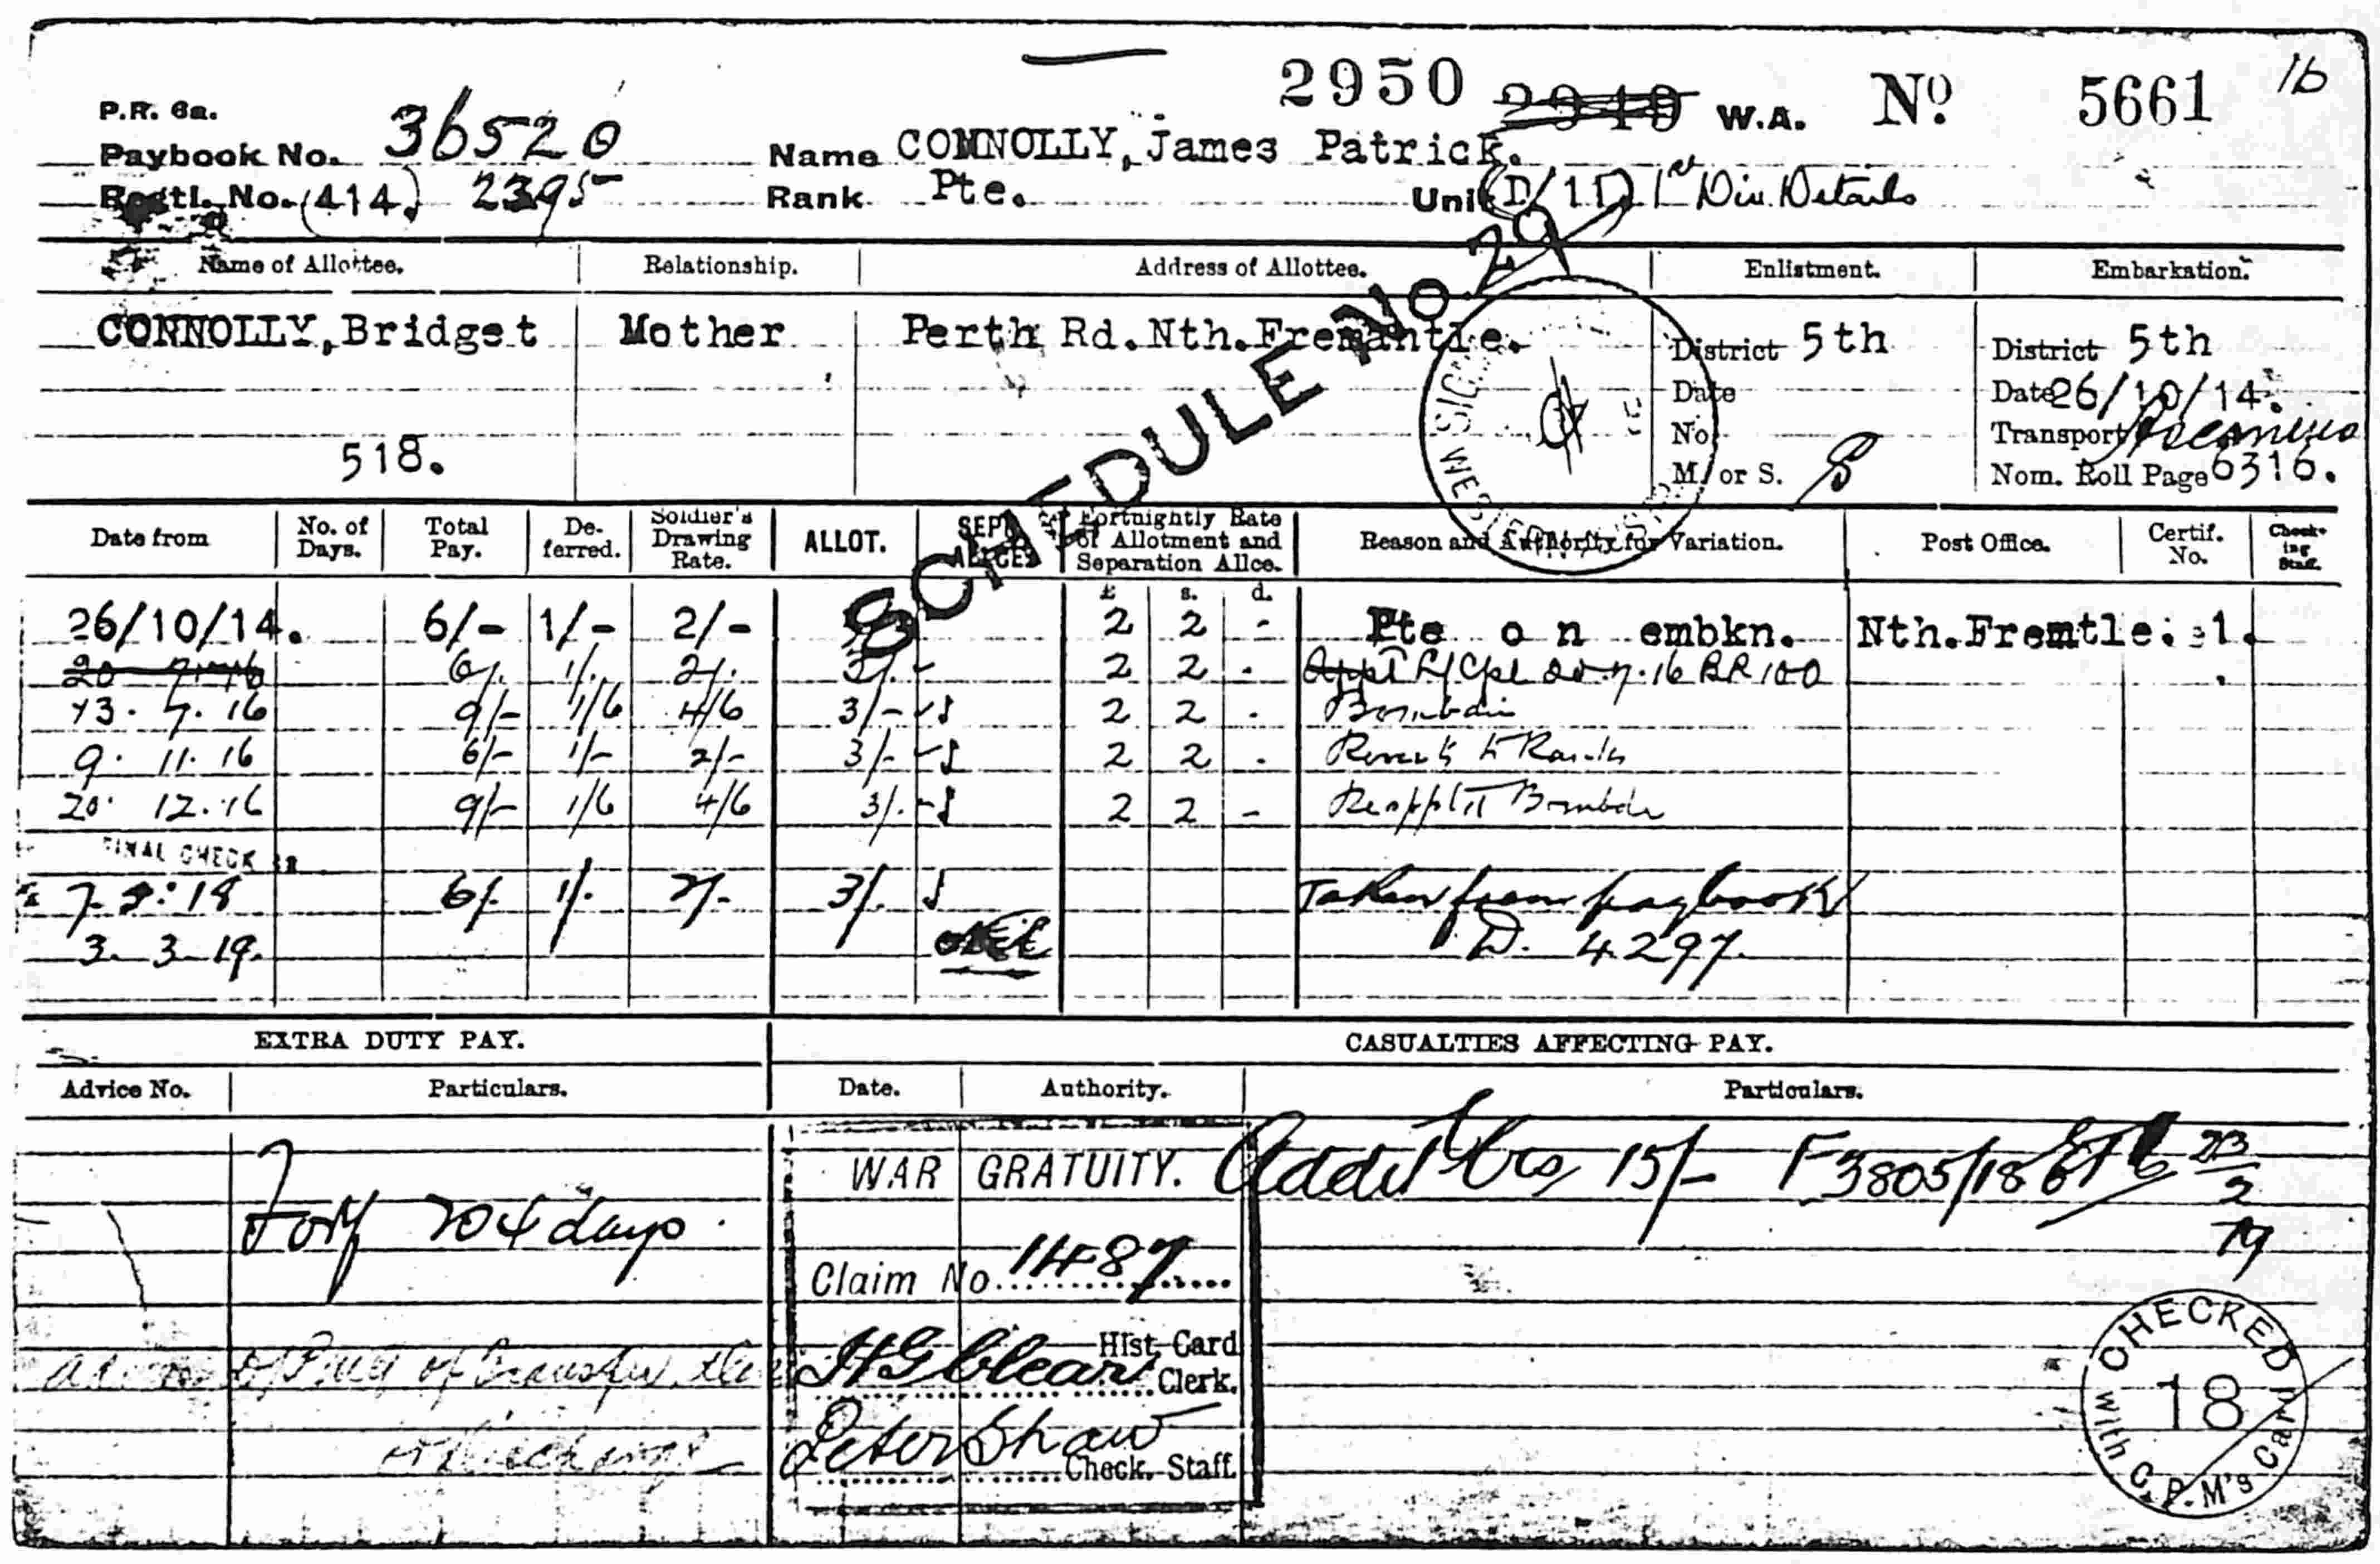 2950 2949 W.A. No. 5661 16
P.R. 6a.
Paybook No. 36520 Name CONNOLLY, James Patrick.
Regtl. No. (414.) 2395 Rank Pte. Unit (D/11) 1st Div. Details
SCHEDULE No. 29
Name of Allottee. Relationship. Address of Allottee. Enlistment. Embarkation.
CONNOLLY, Bridget Mother Perth Rd. Nth. Fremantle. District 5th District 5th
Date Date 26/10/14.
No. Transport Ascanius
518. M. or S. S Nom. Roll Page 6316.
Date from No. of Days. Total Pay. De-ferred. Soldier's Drawing Rate. ALLOT. SEPN ALLCES Fortnightly Rate of Allotment and Separation Allce. Reason and Authority for Variation. Post Office. Certif. No. Check-ing Staff.
£ s. d.
26/10/14. 6/- 1/- 2/- 3/- 2 2 - Pte on embkn. Nth. Fremtle. 1.
20 7.16 6/. 1/. 2/. 3/. - 2 2 . Appt L/Cpl 20.7.16 BR 100
13. 7. 16 9/- 1/6 4/6 3/- 2 2 . Bombdir
9. 11. 16 6/- 1/- 2/- 3/- 2 2 . Reverts to Ranks
20. 12. 16 9/- 1/6 4/6 3/. 2 2 - Reapptd Bombdr
FINAL CHECK
7. 2. 18 6/. 1/. 2/. 3/. Taken from paybook
3. 3. 19. D. 4297.
EXTRA DUTY PAY. CASUALTIES AFFECTING PAY.
Advice No. Particulars. Date. Authority. Particulars.
WAR GRATUITY. 15/- F3805/18 23/2/19
Forf 204 days.
Claim No. 1487
of transfer Hist. Card
H G Clear Clerk.
Peter Shaw
discharge Check. Staff.
CHECKED 18 with C.P.M's Card